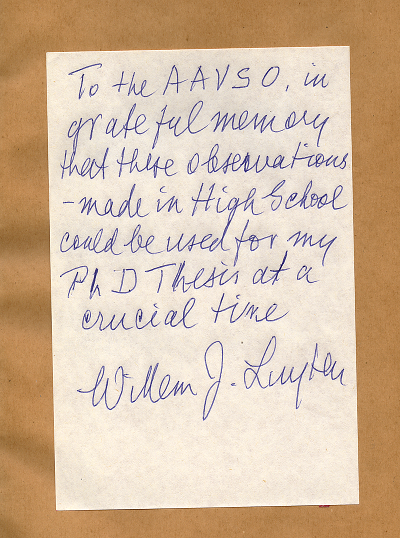 To the AAVSO, in
grateful memory
that these observations
- made in High School
could be used for my
Ph D Thesis at a
crucial time
Willem J. Luyten